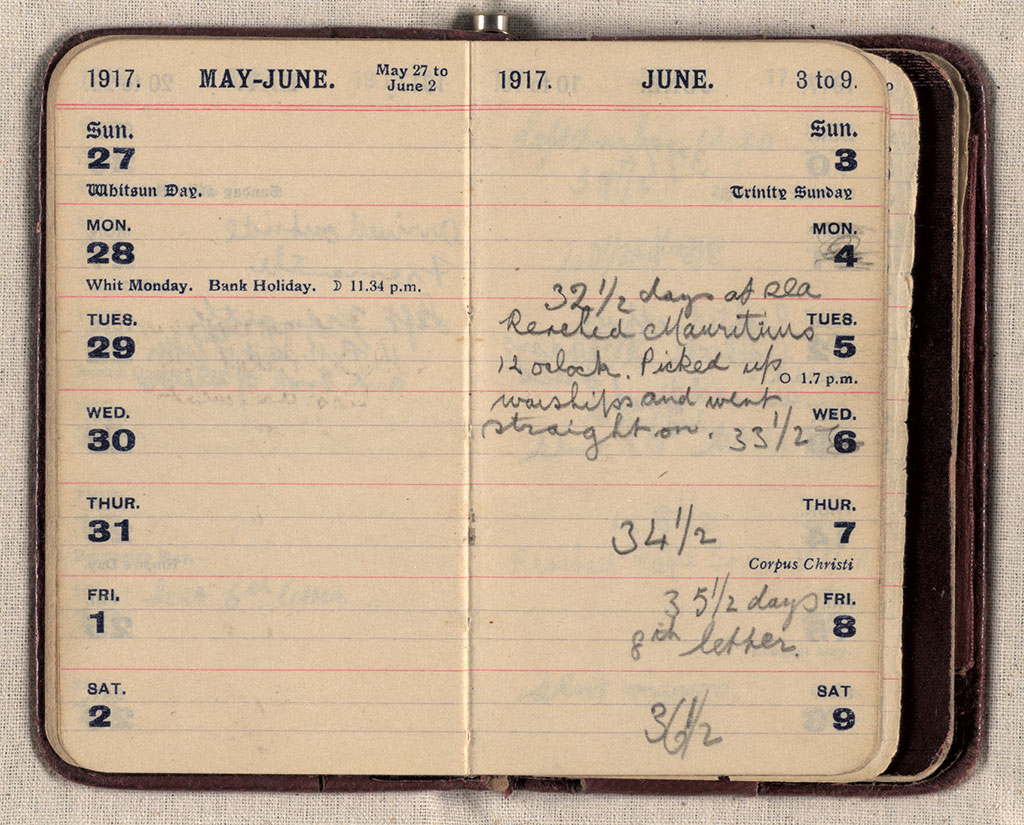 1917. MAY-JUNE. May 27 to June 2
Sun.
27
Whitsun Day.
MON.
28
Whit Monday. Bank Holiday. ☽ 11.34 p.m.
TUES.
29
WED.
30
THUR.
31
FRI.
1
SAT.
2
1917. JUNE. 3 to 9.
Sun.
3
Trinity Sunday
MON.
4
32 1/2 days at sea
Reached Mauritius TUES.
12 oclock. Picked up 5
○ 1.7 p.m.
warships and went WED.
straight on. 33 1/2 6
THUR.
34 1/2 7
Corpus Christi
35 1/2 days FRI.
8th letter. 8
SAT
36 1/2 9